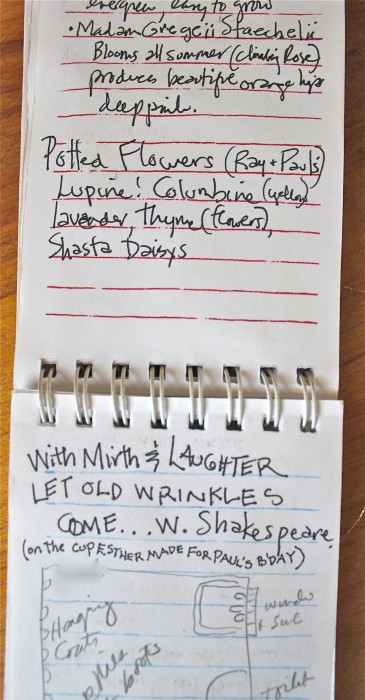 evergreen, easy to grow
• Madam Gregeii Staechelii
Blooms all summer (climbing Rose)
produces beautiful orange hips
deep pink.
Potted Flowers (Ray + Paul's)
Lupine! Columbine (yellow)
lavender, thyme (flowers),
Shasta Daisys
With Mirth & LAUGHTER
LET OLD WRINKLES
COME... W. Shakespeare
(on the CUP ESTHER MADE FOR PAUL'S B'DAY)
Hanging
Coats
boots
window
toilet